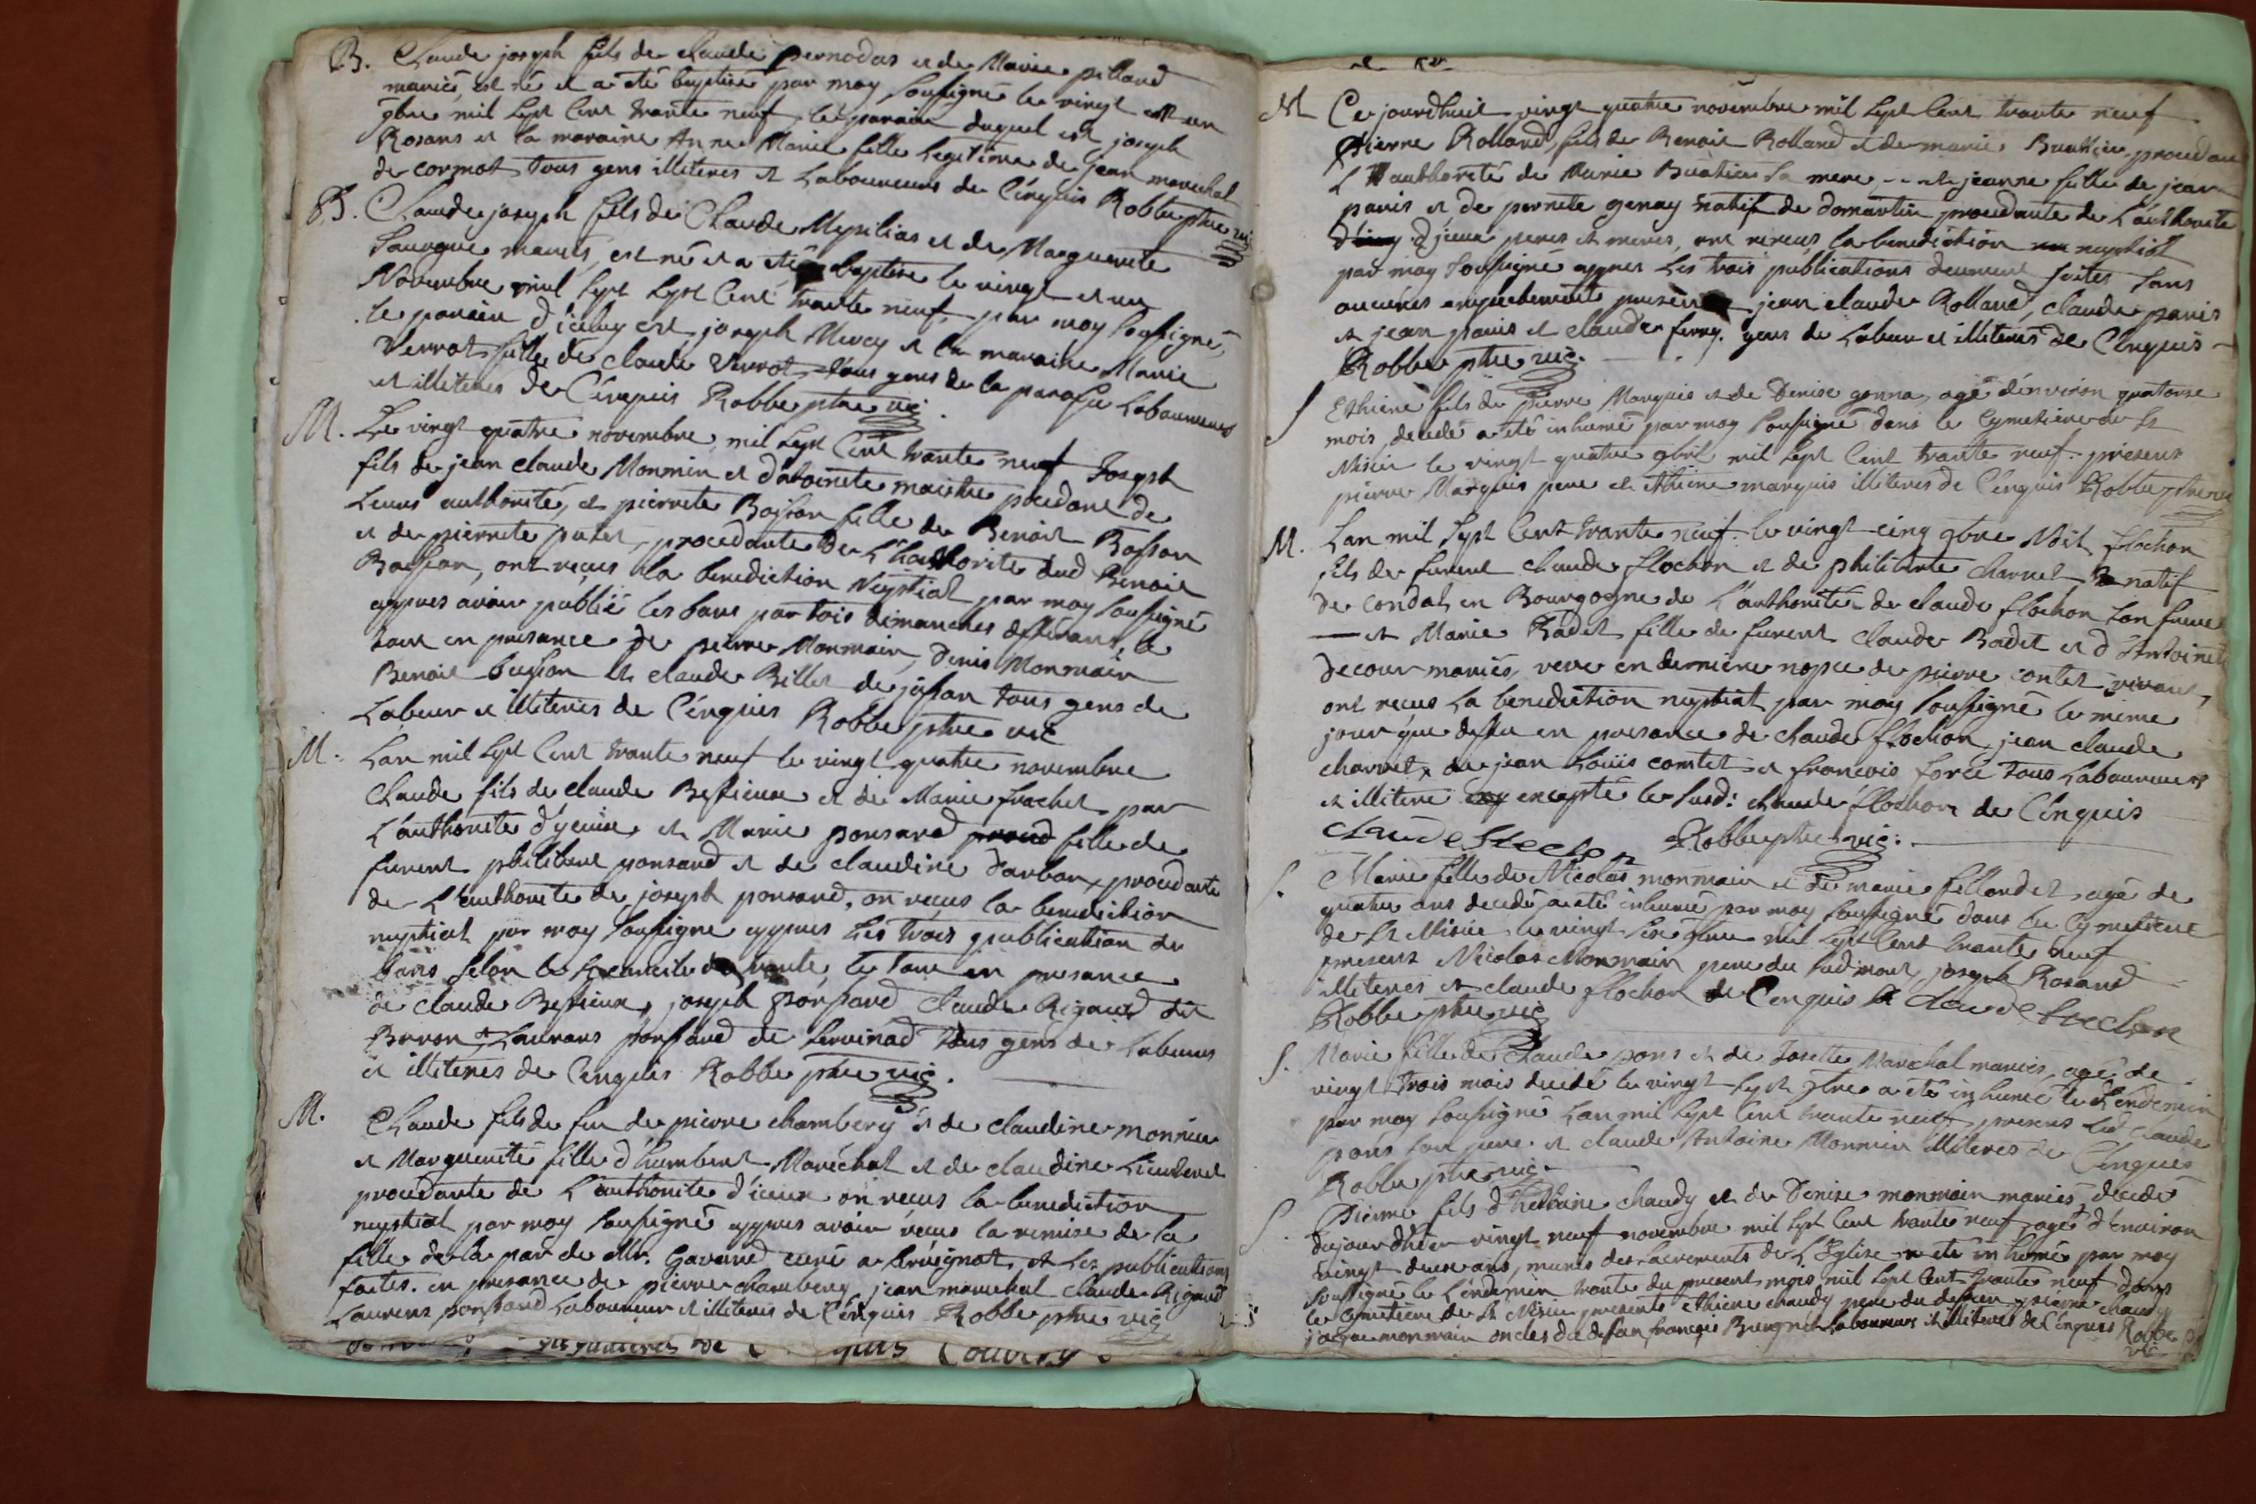 B. Claude joseph fils de claude pernodas et de Marie pilland
mariés, est né et a été baptisé par moy soussigné le vingt et un
9bre mil sept cent trante neuf, le parain duquel est joseph
Rosans et la maraine Anne Marie fille legitime de jean marechal
de cormot tous gens illiteres et Laboureurs de Cuiseaux Robbe ptre vic
B. Claude joseph fils de Claude et de Marguerite
mariés, est né et a été baptisé le vingt et un
Novembre mil sept sept cent trante neuf, par moy soussigné,
le parain d'iceluy est joseph Mercy et la maraine Marie
Verrot fille de claude Verrot, tous gens de la parosse Laboureurs
et illiteres de Robbe ptre vic.
M. Le vingt quatre novembre mil sept Cent trante neuf Joseph
fils de jean claude Monmin et d'atoinete maistre procedant de
Leurs authorité, et pierrete Bosson fille de Benoit Bosson
et de pierrete procedante de L'hauthorite dud Benoit
ont reçus la benediction Nuptial par moy soussigné
appres avoir publié les bans par trois dimanches differans, le
tout en presance de pierre Monmain, Denis Monmain
Benoit et claude Billet de tous gens de
Labeur et illiteres de Robbe ptre vic
M. Lan mil sept Cent trante neuf le vingt quatre novembre
Claude fils de claude Bessieux et de Marie frachet par
L'authorité d'yceux et Marie ponsard fille de
furent philibert ponsard et de claudine Darbon, procedante
de L'authorite de joseph ponsard, on reçus la benediction
nuptial par moy soussigne appres les trois publication de
bans selon le de trante, le tout en presance
de claude Bessieux, joseph ponsard claude Rigaud dit
Baron et Laurans ponsard de tous gens de Labeurs
et illiteres de Robbe ptre vic.
M. Claude fils de feu de pierre chambery et de claudine monnier
et Marguerite fille d'humbert Maréchal et de claudine
procedante de L'authorite d'iceux on reçus la benediction
nuptial par moy soussigné appres avoir reçus la remise de la
fille de la par de Mr. Gavand curé a et les publications
faites. en presance de pierre chambery jean marechal claude Rigaud
Laurens ponsard Laboureur et illiteres de Robbe ptre vic
M Ce jourdhuit vingt quatre novembre mil sept Cent trante neuf
Pierre Rolland, fils de Benoit Rolland et de marie procedan
L'authoreté de Marie sa mere, et jeanne fille de jean
panis et de pernete genay natif de domartin procedante de L'authorite
d'jceux peres et meres, ont reçus la benediction nuptial
par moy soussigné appres les trois publications deument faites sans
aucunes empechements jean claude Rolland, claude panis
et jean panis et claude ferry. gens de Labeur et illiteres de
Robbe ptre vic.
S Ethiene fils de pierre Marquis et de Denise gonna, agé d'environ quatorse
mois, decedé a été inhumé par moy soussigné dans le Cymetiere de St
Misin le vingt quatre 9bre mil sept Cent trante neuf. presens
pierre Marquis pere et ethiene marquis illiteres de Robbe ptre vic
M. Lan mil sept Cent trante neuf. le vingt cinq 9bre flochon
fils de furent claude flochon et de philiberte charnet natif
de condal en Bourgogne de L'authorité de claude flochon son frere
et Marie Badet fille de furent claude Badet et d'Antoinete
decour mariés, veve en derniere nopce de pierre contet vivant,
ont reçus La benediction nuptiat par moy soussigné le meme
jour que dessu en presance de claude flochon, jean claude
charnet, de jean Loüis comtet et francois force tous Laboureurs
et illitere excepté le susd: claude flochon de
claude flochon Robbe ptre vic:
S. Marie fille de Nicolas monmain et de marie agé de
quatre ans decedé a été inhumé par moy soussigné dans le Cymetiere
de St Misin le vingt six 9bre mil sept Cent trante neuf
presens Nicolas Monmain pere du joseph Rosand
illiteres et claude flochon de claude flochon
Robbe ptre vic
S. Marie fille de Claude pons et de Josette Maréchal mariés, agé de
vingt trois mois decedé le vingt sept 9bre a été inhumé le Lendemin
par moy soussigné Lan mil sept Cent trante neuf presens led Claude
pons son pere et claude Antoine Monmin illiteres de
Robbe ptre vic.
S. Pierre fils d'hethiene chaudy et de Denise monmain mariés, decedé
dujourdhier vingt neuf novembre mil sept Cent trante neuf, agé d'Environ
vingt deux ans, munis des sacrements de L'Eglise a été inhumé par moy
soussigné le Lendemin trante du present mois mil sept Cent trante neuf dans
le Cymetiere de St Misin presents Ethiene chaudy pere du pierre chaudy
monmain oncles du francois Laboureurs illiteres de Robbe ptre
vic